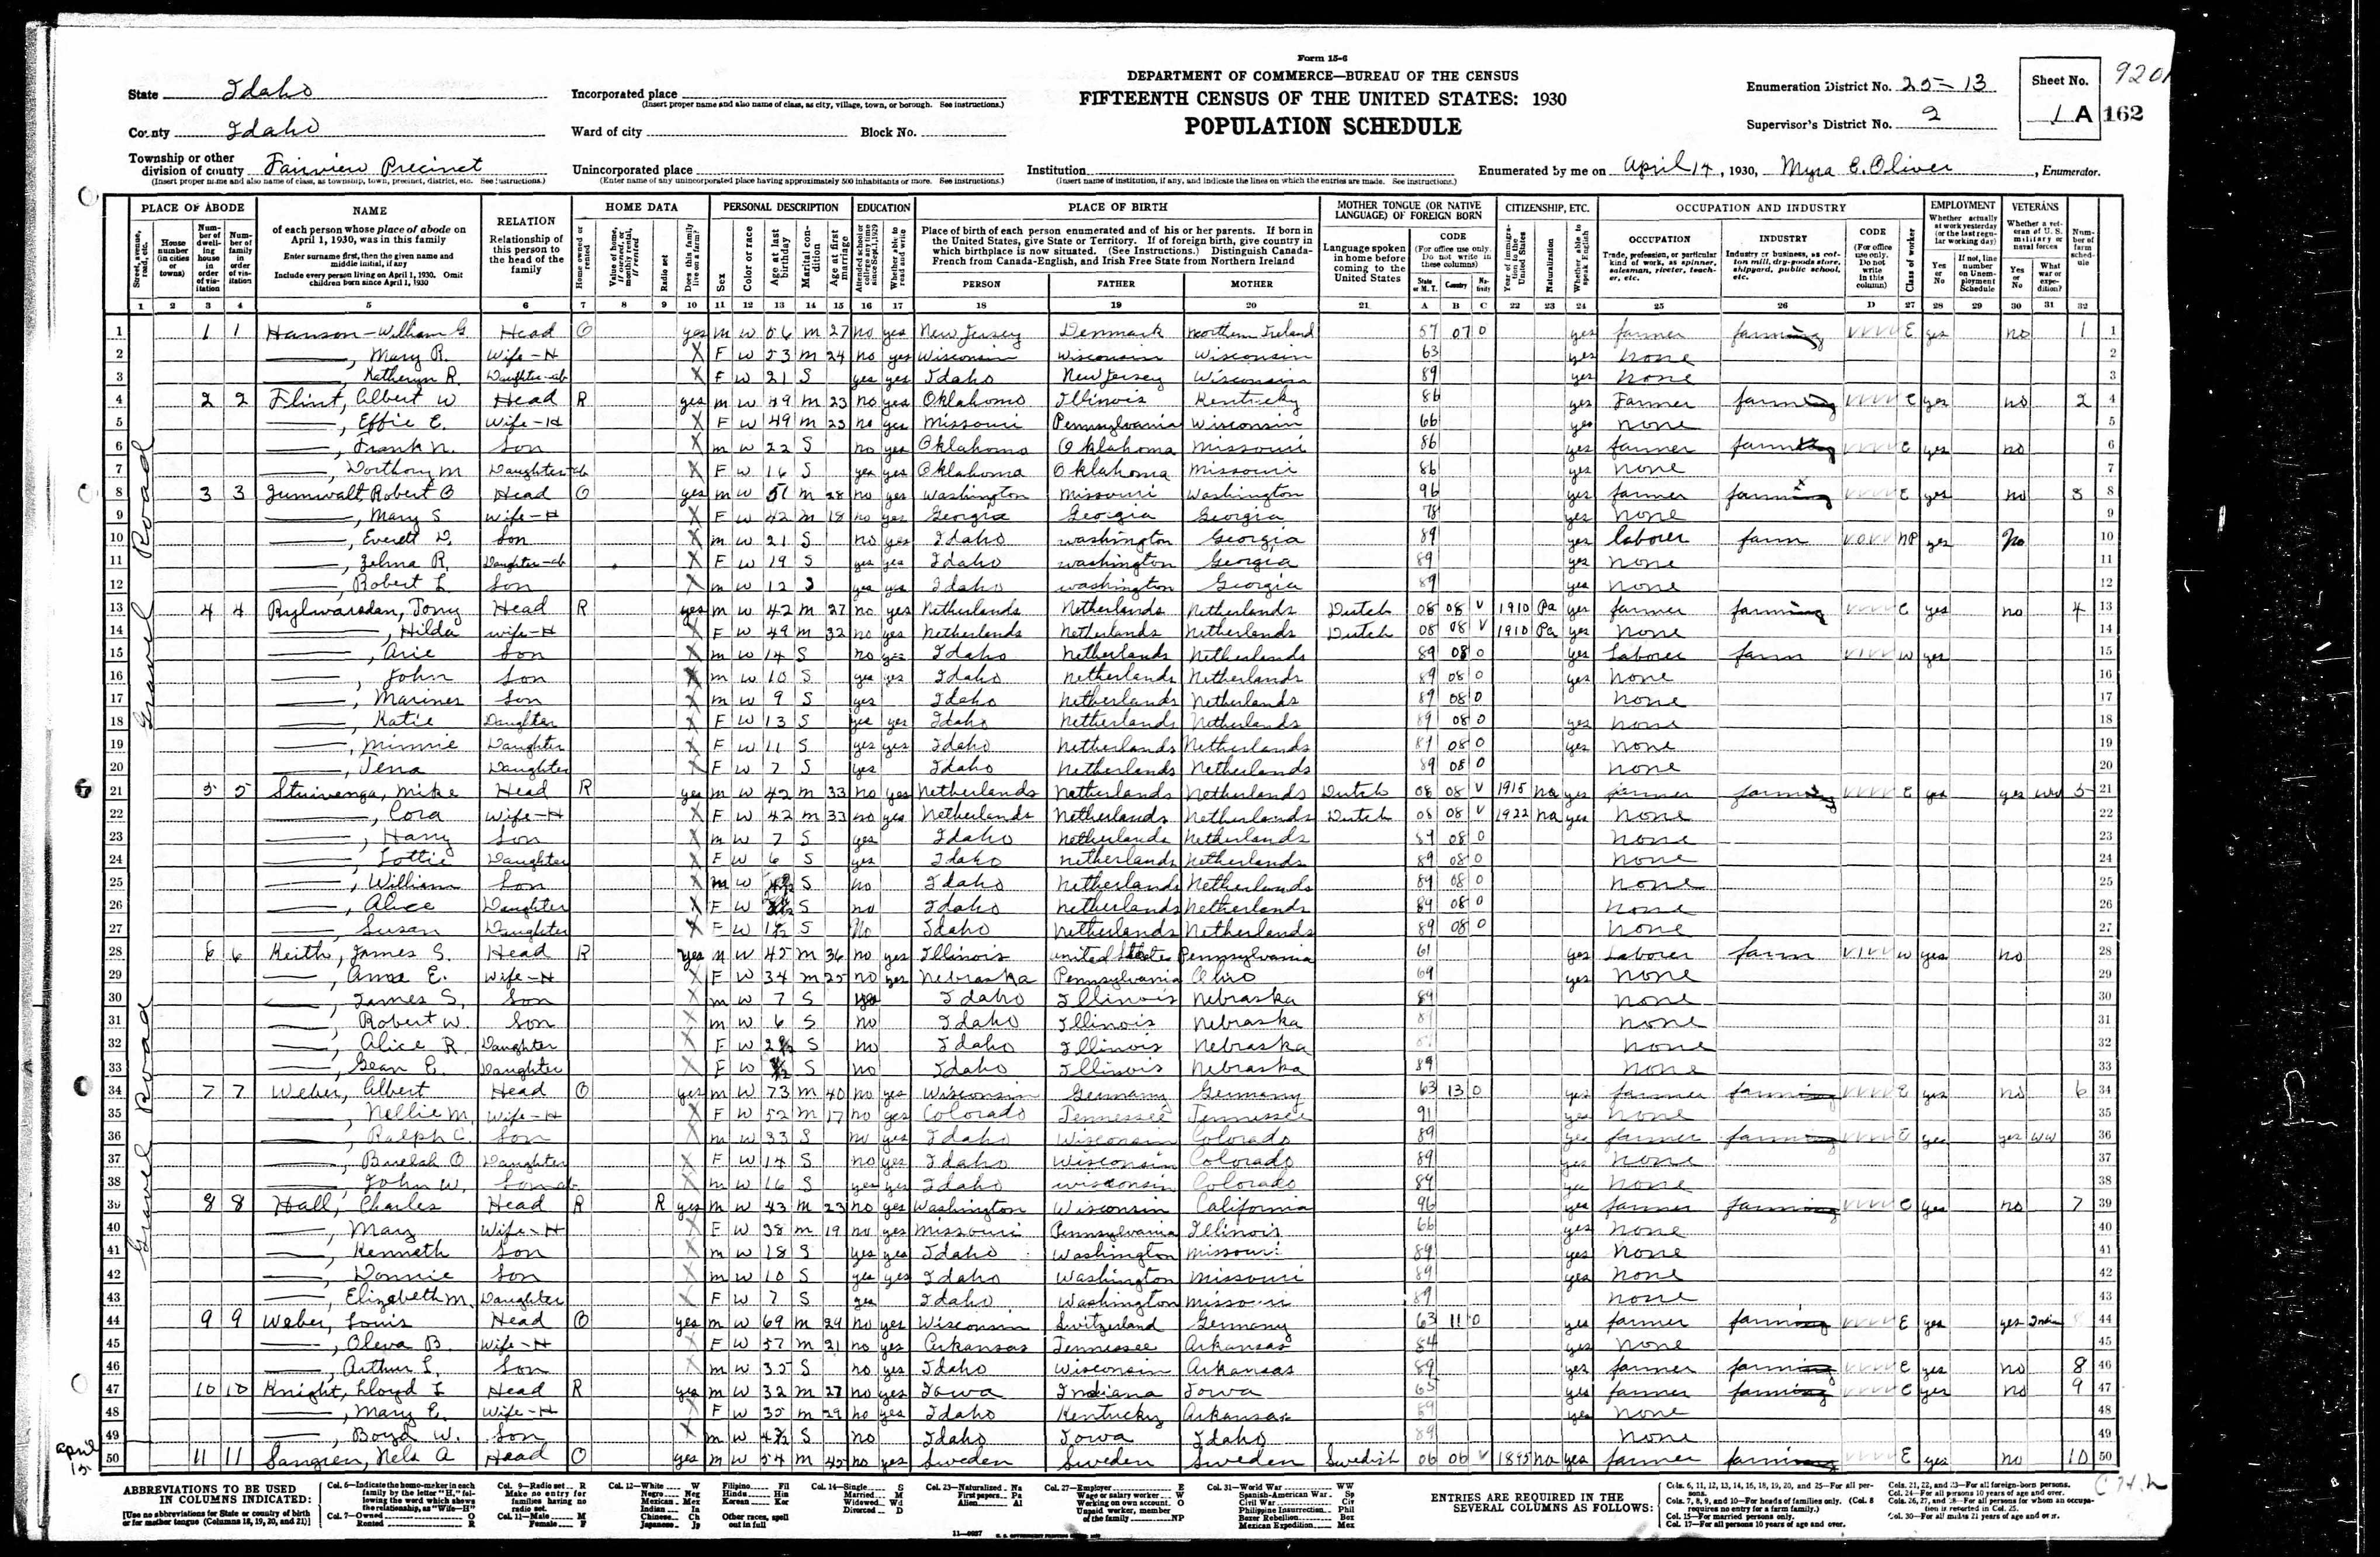 Form 15-6
DEPARTMENT OF COMMERCE—BUREAU OF THE CENSUS
FIFTEENTH CENSUS OF THE UNITED STATES: 1930
POPULATION SCHEDULE
State Idaho
County Idaho
Township or other division of county Fairview Precinct
(Insert proper name and also name of class, as township, town, precinct, district, etc. See instructions.)
Incorporated place
(Insert proper name and also name of class, as city, village, town, or borough. See instructions.)
Ward of city Block No.
Unincorporated place
(Enter name of any unincorporated place having approximately 500 inhabitants or more. See instructions.)
Institution
(Insert name of institution, if any, and indicate the lines on which the entries are made. See instructions.)
Enumeration District No. 25-13
Supervisor's District No. 2
Sheet No. 1 A 162
Enumerated by me on April 14, 1930, Myra E. Oliver, Enumerator.
PLACE OF ABODE NAME RELATION HOME DATA PERSONAL DESCRIPTION EDUCATION PLACE OF BIRTH MOTHER TONGUE (OR NATIVE LANGUAGE) OF FOREIGN BORN CITIZENSHIP, ETC. OCCUPATION AND INDUSTRY EMPLOYMENT VETERANS
PERSON FATHER MOTHER
1 2 3 4 5 6 7 8 9 10 11 12 13 14 15 16 17 18 19 20 21 A B C 22 23 24 25 26 D 27 28 29 30 31 32
Gravel Road
1 1 1 Hanson William G Head O yes M W 56 M 27 no yes New Jersey Denmark Northern Ireland 57 07 0 yes farmer farming VVVV E yes no 1 1
2 , Mary R. Wife-H X F W 53 M 24 no yes Wisconsin Wisconsin Wisconsin 63 yes none 2
3 , Katheryn R. Daughter X F W 21 S yes yes Idaho New Jersey Wisconsin 89 yes none 3
4 2 2 Flint, Albert W Head R yes M W 49 M 23 no yes Oklahoma Illinois Kentucky 86 yes Farmer farming VVVV E yes no 2 4
5 , Effie E. Wife-H X F W 49 M 23 no yes Missouri Pennsylvania Wisconsin 66 yes none 5
6 , Frank N. Son X M W 22 S no yes Oklahoma Oklahoma Missouri 86 yes farmer farming VVVV E yes no 6
7 , Dorthory M Daughter X F W 16 S yes yes Oklahoma Oklahoma Missouri 86 yes none 7
8 3 3 Zumwalt, Robert O Head O yes M W 51 M 28 no yes Washington Missouri Washington 96 yes farmer farming VVVV E yes no 3 8
9 , Mary S Wife-H X F W 42 M 18 no yes Georgia Georgia Georgia 78 yes none 9
10 , Everett D. Son X M W 21 S no yes Idaho Washington Georgia 89 yes laborer farm VOVV NP yes no 10
11 , Zelma R. Daughter X F W 19 S yes yes Idaho Washington Georgia 89 yes none 11
12 , Robert L. Son X M W 12 S yes yes Idaho Washington Georgia 89 yes none 12
13 4 4 Rylwarsdan, Tony Head R yes M W 42 M 27 no yes Netherlands Netherlands Netherlands Dutch 08 08 V 1910 Pa yes farmer farming VVVV E yes no 4 13
14 , Hilda Wife-H X F W 49 M 32 no yes Netherlands Netherlands Netherlands Dutch 08 08 V 1910 Pa yes none 14
15 , Arie Son X M W 14 S no yes Idaho Netherlands Netherlands 89 08 0 yes Laborer farm VIVV W yes 15
16 , John Son X M W 10 S yes yes Idaho Netherlands Netherlands 89 08 0 yes none 16
17 , Mariner Son X M W 9 S yes Idaho Netherlands Netherlands 89 08 0 none 17
18 , Katie Daughter X F W 13 S yes yes Idaho Netherlands Netherlands 89 08 0 yes none 18
19 , Minnie Daughter X F W 11 S yes yes Idaho Netherlands Netherlands 89 08 0 yes none 19
20 , Jena Daughter X F W 7 S yes Idaho Netherlands Netherlands 89 08 0 none 20
21 5 5 Stuivenga, Mike Head R yes M W 42 M 33 no yes Netherlands Netherlands Netherlands Dutch 08 08 V 1915 na yes farmer farming VVVV E yes yes WW 5 21
22 , Cora Wife-H X F W 42 M 33 no yes Netherlands Netherlands Netherlands Dutch 08 08 V 1922 na yes none 22
23 , Harry Son X M W 7 S yes Idaho Netherlands Netherlands 89 08 0 none 23
24 , Lottie Daughter X F W 6 S yes Idaho Netherlands Netherlands 89 08 0 none 24
25 , William Son X M W S no Idaho Netherlands Netherlands 89 08 0 none 25
26 , Alice Daughter X F W S no Idaho Netherlands Netherlands 89 08 0 none 26
27 , Susan Daughter X F W S no Idaho Netherlands Netherlands 89 08 0 none 27
28 6 6 Keith, James S. Head R yes M W 45 M 36 no yes Illinois United States Pennsylvania 61 yes Laborer farm VIVV W yes no 28
29 , Anna E. Wife-H X F W 34 M 25 no yes Nebraska Pennsylvania Ohio 69 yes none 29
30 , James S. Son X M W 7 S Idaho Illinois Nebraska 89 none 30
31 , Robert W. Son X M W 6 S no Idaho Illinois Nebraska 89 none 31
32 , Alice R. Daughter X F W S no Idaho Illinois Nebraska none 32
33 , Gean E. Daughter X F W S no Idaho Illinois Nebraska 89 none 33
34 7 7 Weber, Albert Head O yes M W 73 M 40 no yes Wisconsin Germany Germany 63 13 0 yes farmer farming VVVV E yes no 6 34
35 , Nellie M. Wife-H X F W 52 M 17 no yes Colorado Tennessee Tennessee 91 yes none 35
36 , Ralph C. Son X M W 33 S no yes Idaho Wisconsin Colorado 89 yes farmer farming VVVV E yes yes WW 36
37 , Buelah O Daughter X F W 14 S no yes Idaho Wisconsin Colorado 89 yes none 37
38 , John W. Son X M W 16 S yes yes Idaho Wisconsin Colorado 89 yes none 38
39 8 8 Hall, Charles Head R R yes M W 43 M 23 no yes Washington Wisconsin California 96 yes farmer farming VVVV E yes no 7 39
40 , Mary Wife-H X F W 38 M 19 no yes Missouri Pennsylvania Illinois 66 yes none 40
41 , Kenneth Son X M W 18 S yes yes Idaho Washington Missouri 89 yes none 41
42 , Donnie Son X M W 10 S yes yes Idaho Washington Missouri 89 yes none 42
43 , Elizabeth M. Daughter X F W 7 S yes Idaho Washington Missouri 89 none 43
44 9 9 Weber, Louis Head O yes M W 69 M 29 no yes Wisconsin Switzerland Germany 63 11 0 yes farmer farming VVVV E yes yes Indian 44
45 , Oleva B. Wife-H X F W 57 M 21 no yes Arkansas Tennessee Arkansas 84 yes none 45
46 , Arthur L. Son X M W 35 S no yes Idaho Wisconsin Arkansas 89 yes farmer farming VVVV E yes no 8 46
47 10 10 Knight, Lloyd L Head R yes M W 32 M 27 no yes Iowa Indiana Iowa 65 yes farmer farming VVVV E yes no 9 47
48 , Mary E. Wife-H X F W 35 M 29 no yes Idaho Kentucky Arkansas 89 yes none 48
49 , Boyd W. Son X M W S no Idaho Iowa Idaho 89 none 49
April 15
50 11 11 Sangren, Nels A Head O yes M W 54 M 45 no yes Sweden Sweden Sweden Swedish 06 06 V 1895 na yes farmer farming VVVV E yes no 10 50
ABBREVIATIONS TO BE USED IN COLUMNS INDICATED:
[Use no abbreviations for State or country of birth or for mother tongue (Columns 18, 19, 20, and 21)]
Col. 6—Indicate the home-maker in each family by the letter "H," following the word which shows the relationship, as "Wife—H"
Col. 7—Owned O Rented R
Col. 9—Radio set R Make no entry for families having no radio set.
Col. 11—Male M Female F
Col. 12—White W Negro Neg Mexican Mex Indian In Chinese Ch Japanese Jp
Filipino Fil Hindu Hin Korean Kor Other races, spell out in full
Col. 14—Single S Married M Widowed Wd Divorced D
Col. 23—Naturalized Na First papers Pa Alien Al
Col. 27—Employer E Wage or salary worker W Working on own account O Unpaid worker, member of the family NP
Col. 31—World War WW Spanish-American War Sp Civil War Civ Philippine Insurrection Phil Boxer Rebellion Box Mexican Expedition Mex
ENTRIES ARE REQUIRED IN THE SEVERAL COLUMNS AS FOLLOWS:
Cols. 6, 11, 12, 13, 14, 16, 18, 19, 20, and 25—For all persons.
Cols. 7, 8, 9, and 10—For heads of families only. (Col. 8 requires no entry for a farm family.)
Col. 15—For married persons only.
Col. 17—For all persons 10 years of age and over.
Cols. 21, 22, and 23—For all foreign-born persons.
Col. 24—For all persons 10 years of age and over.
Cols. 26, 27, and 28—For all persons for whom an occupation is reported in Col. 25.
Col. 30—For all males 21 years of age and over.